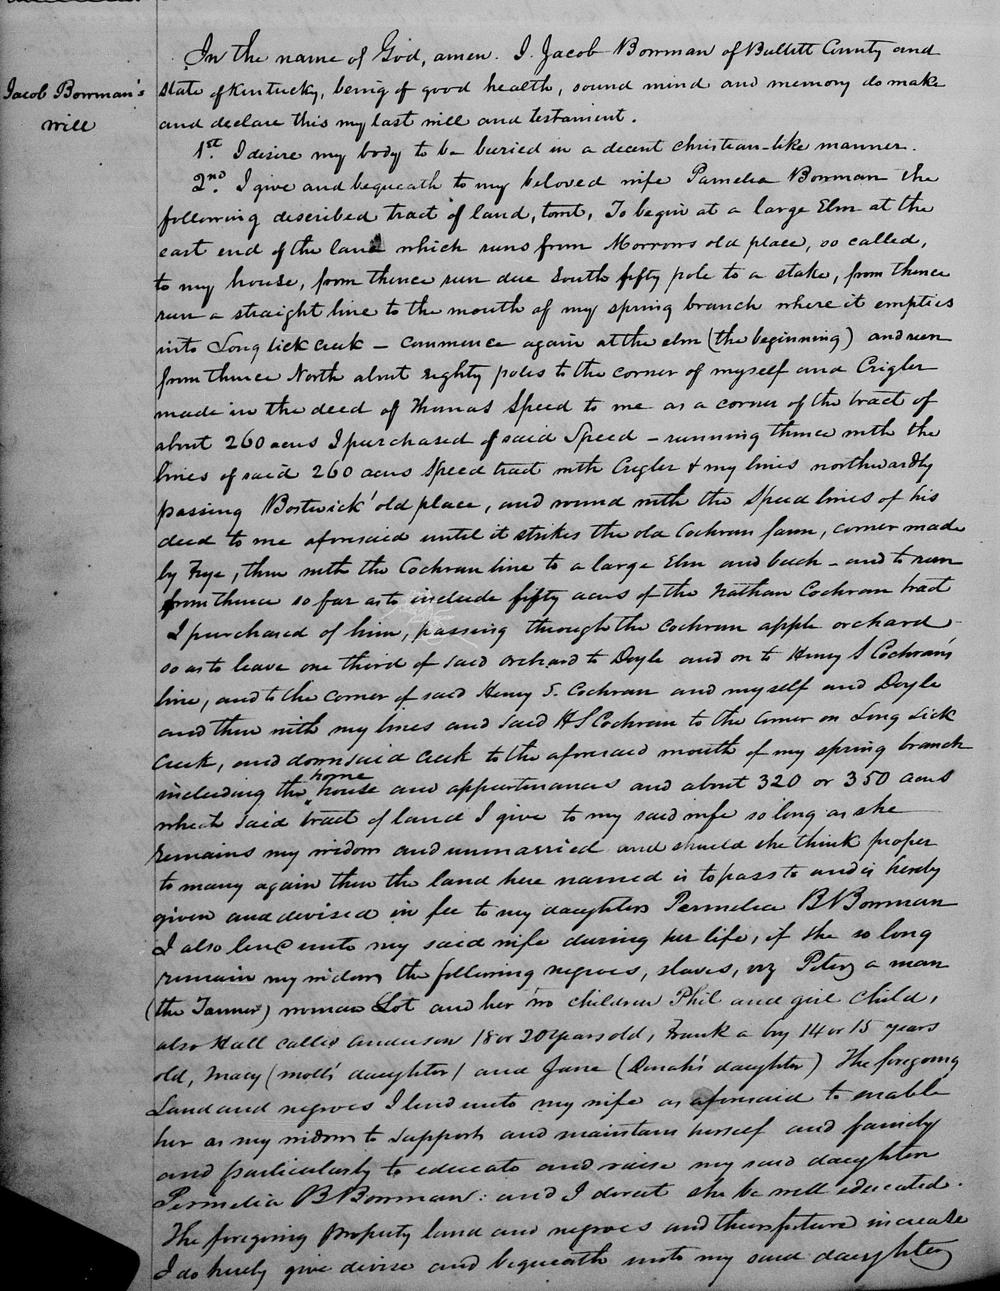 Jacob Bowman's
Will
In the name of God, amen. I. Jacob Bowman of Bullitt County and
state of Kentucky, being of good health, sound mind and memory do make
and declare this my last will and testament.
1st. I desire my body to be buried in a decent christian-like manner.
2nd. I give and bequeath to my beloved wife Pamelia Bowman the
following described tract of land, towit, To begin at a large Elm at the
east end of the land which runs from Morrows old place, so called,
to my house, from thence run due South fifty pole to a stake, from thence
run a straight line to the mouth of my spring branch where it empties
into Long lick creek – commence again at the elm (the beginning) and run
from thence North about eighty poles to the corner of myself and Crigler
made in the deed of Thomas Speed to me as a corner of the tract of
about 260 acres I purchased of said Speed – running thence with the
lines of said 260 acres Speed tract with Crigler & my lines northwardly
passing Bostwick' old place, and round with the Speed lines of his
deed to me aforesaid until it strikes the old Cochran farm, corner made
by Frye, then with the Cochran line to a large Elm and back – and to run
from thence so far as to include fifty acres of the Nathan Cochran tract
I purchased of him, passing through the Cochran apple orchard
so as to leave one third of said orchard to Doyle and on to Henry S Cochran's
line, and to the corner of said Henry S. Cochran and myself and Doyle
and then with my lines and said H S Cochran to the corner on Long Lick
Creek, and down said Creek to the aforesaid mouth of my spring branch
including the home house and appurtenances and about 320 or 350 acres
which said tract of land I give to my said wife so long as she
remains my widow and unmarried and should she think proper
to marry again then the land here named is to pass to and is hereby
given and devised in fee to my daughter Permelia B Bowman
I also lend unto my said wife during her life, if she so long
remain my widow the following negroes, slaves, viz Peter a man
(the Tanner) woman Lot and her two children Phil and girl child,
also Hall called Anderson 18 or 20 years old, Frank a boy 14 or 15 years
old, Macy (Moll's daughter) and Jane (Dinah's daughter) The foregoing
Land and negroes I lend unto my wife as aforesaid to enable
her as my widow to support and maintain herself and family
and particularly to educate and raise my said daughter
Permelia B Bowman: and I direct she be well educated.
The foregoing property land and negroes and their future increase
I do hereby give devise and bequeath unto my said daughter